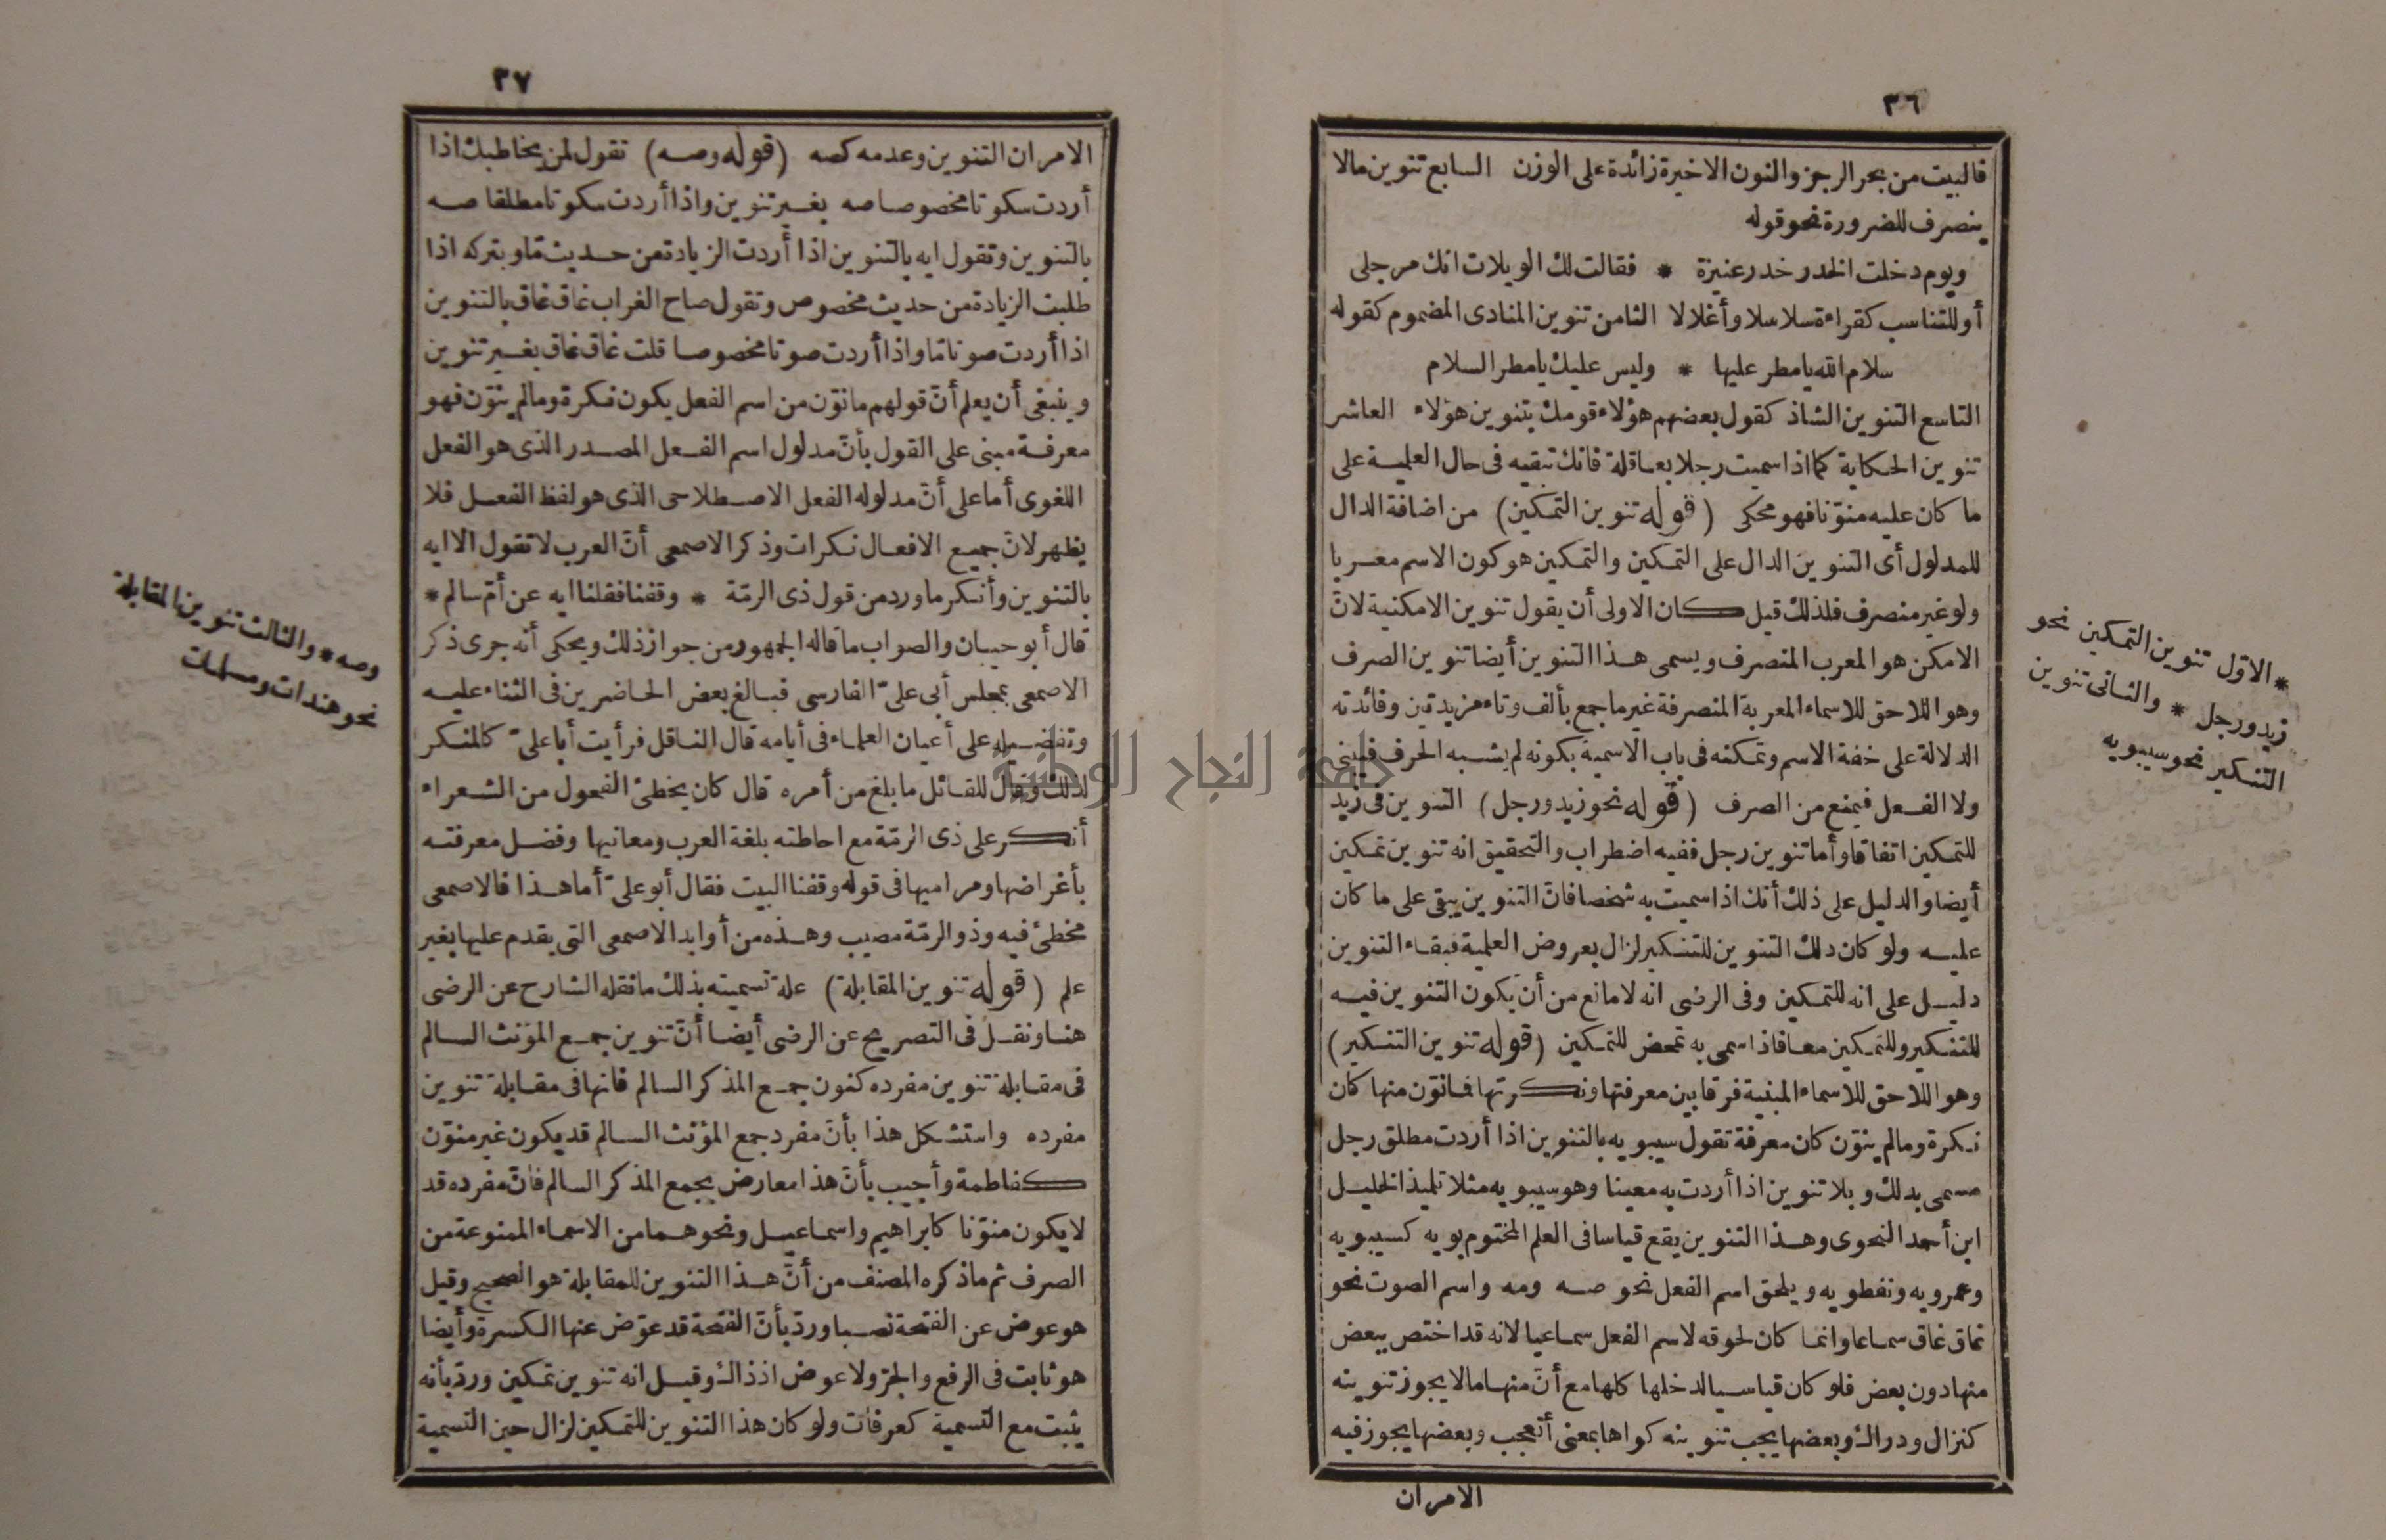 ٣٦
فالبيت من بحر الرجز والنون الاخيرة زائدة على الوزن السابع تنوين مالا
ينصرف للضرورة نحو قوله
ويوم دخلت الخدر خدر عنيزة * فقالت لك الويلات انك مرجلى
أو للتناسب كقراءة سلاسلا وأغلالا الثامن تنوين المنادى المضموم كقوله
سلام الله يا مطر عليها * وليس عليك يا مطر السلام
التاسع التنوين الشاذ كقول بعضهم هؤلاء قومك بتنوين هؤلاء العاشر
تنوين الحكاية كما اذا سميت رجلا بعاقلة فانك تبقيه فى حال العلمية على
ما كان عليه منوّنا فهو محكى (قوله تنوين التمكين) من اضافة الدال
للمدلول أى التنوين الدال على التمكين والتمكين هو كون الاسم معربا
ولو غير منصرف فلذلك قيل كان الاولى أن يقول تنوين الامكنية لانّ
الامكن هو المعرب المنصرف ويسمى هذا التنوين أيضا تنوين الصرف
وهو اللاحق للاسماء المعربة المنصرفة غير ما جمع بألف وتاء مزيدتين وفائدته
الدلالة على خفة الاسم وتمكنه فى باب الاسمية بكونه لم يشبه الحرف فيبنى
ولا الفعل فيمنع من الصرف (قوله نحو زيد ورجل) التنوين فى زيد
للتمكين اتفاقا وأما تنوين رجل ففيه اضطراب والتحقيق انه تنوين تمكين
أيضا والدليل على ذلك أنك اذا سميت به شخصا فانّ التنوين يبقى على ما كان
عليه ولو كان ذلك التنوين للتنكير لزال بعروض العلمية فبقاء التنوين
دليل على انه للتمكين وفى الرضى انه لا مانع من أن يكون التنوين فيه
للتنكير وللتمكين معا فاذا سمى به تمحض للتمكين (قوله تنوين التنكير)
وهو اللاحق للاسماء المبنية فرقا بين معرفتها ونكرتها فما نوّن منها كان
نكرة وما لم ينوّن كان معرفة تقول سيبويه بالتنوين اذا أردت مطلق رجل
مسمى بذلك وبلا تنوين اذا أردت به معينا وهو سيبويه مثلا تلميذ الخليل
ابن أحمد النحوى وهذا التنوين يقع قياسا فى العلم المختوم بويه كسيبويه
وعمرويه ونفطويه ويلحق اسم الفعل نحو صه ومه واسم الصوت نحو
غاق غاق سماعا وانما كان لحوقه لاسم الفعل سماعيا لانه قد اختص ببعض
منها دون بعض فلو كان قياسيا لدخلها كلها مع أنّ منها مالا يجوز تنوينه
كنزال ودراك وبعضها يجب تنوينه كواها بمعنى أتعجب وبعضها يجوز فيه
الامران
* الاوّل تنوين التمكين نحو
زيد ورجل * والثانى تنوين
التنكير نحو سيبويه
٣٧
الامران التنوين وعدمه كصه (قوله وصه) تقول لمن يخاطبك اذا
أردت سكوتا مخصوصا صه بغير تنوين واذا أردت سكوتا مطلقا صه
بالتنوين وتقول ايه بالتنوين اذا أردت الزيادة من حديث مّا وبتركه اذا
طلبت الزيادة من حديث مخصوص وتقول صاح الغراب غاق غاق بالتنوين
اذا أردت صوتا مّا واذا أردت صوتا مخصوصا قلت غاق غاق بغير تنوين
وينبغى أن يعلم أنّ قولهم ما نوّن من اسم الفعل يكون نكرة وما لم ينوّن فهو
معرفة مبنى على القول بأنّ مدلول اسم الفعل المصدر الذى هو الفعل
اللغوى أما على أنّ مدلوله الفعل الاصطلاحى الذى هو لفظ الفعل فلا
يظهر لانّ جميع الافعال نكرات وذكر الاصمعى أنّ العرب لا تقول الا ايه
بالتنوين وأنكر ما ورد من قول ذى الرمّة * وقفنا فقلنا ايه عن أمّ سالم *
قال أبو حيان والصواب ما قاله الجمهور من جواز ذلك ويحكى أنه جرى ذكر
الاصمعى بمجلس أبى علىّ الفارسى فبالغ بعض الحاضرين فى الثناء عليه
وتفضيله على أعيان العلماء فى أيامه قال الناقل فرأيت أبا علىّ كالمنكر
لذلك وقال للقائل ما بلغ من أمره قال كان يخطئ الفحول من الشعراء
أنكر على ذى الرمّة مع احاطته بلغة العرب ومعانيها وفضل معرفته
بأغراضها ومراميها فى قوله وقفنا البيت فقال أبو علىّ أما هذا فالاصمعى
مخطئ فيه وذو الرمّة مصيب وهذه من أوابد الاصمعى التى يقدم عليها بغير
علم (قوله تنوين المقابلة) علة تسميته بذلك ما نقله الشارح عن الرضى
هنا ونقل فى التصريح عن الرضى أيضا أنّ تنوين جمع المؤنث السالم
فى مقابلة تنوين مفرده كنون جمع المذكر السالم فانها فى مقابلة تنوين
مفرده واستشكل هذا بأنّ مفرد جمع المؤنث السالم قد يكون غير منوّن
كفاطمة وأجيب بأنّ هذا معارض بجمع المذكر السالم فانّ مفرده قد
لا يكون منوّنا كابراهيم واسماعيل ونحوهما من الاسماء الممنوعة من
الصرف ثم ما ذكره المصنف من أنّ هذا التنوين للمقابلة هو الصحيح وقيل
هو عوض عن الفتحة نصبا وردّ بأنّ الفتحة قد عوّض عنها الكسرة وأيضا
هو ثابت فى الرفع والجرّ ولا عوض اذ ذاك وقيل انه تنوين تمكين وردّ بأنه
يثبت مع التسمية كعرفات ولو كان هذا التنوين للتمكين لزال حين التسمية
وصه * والثالث تنوين المقابلة
نحو هندات ومسلمات
جامعة النجاح الوطنية